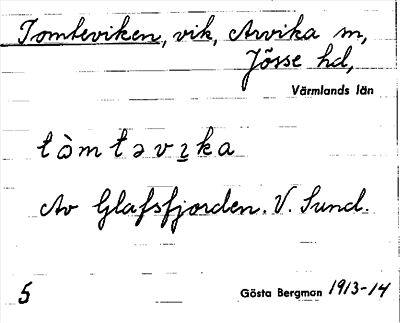 Tomteviken, vik, Arvika sn,
Jösse hd,
Värmlands län
tòmtəvıka
Av Glafsfjorden. V. Sund.
5 Gösta Bergman 1913-14